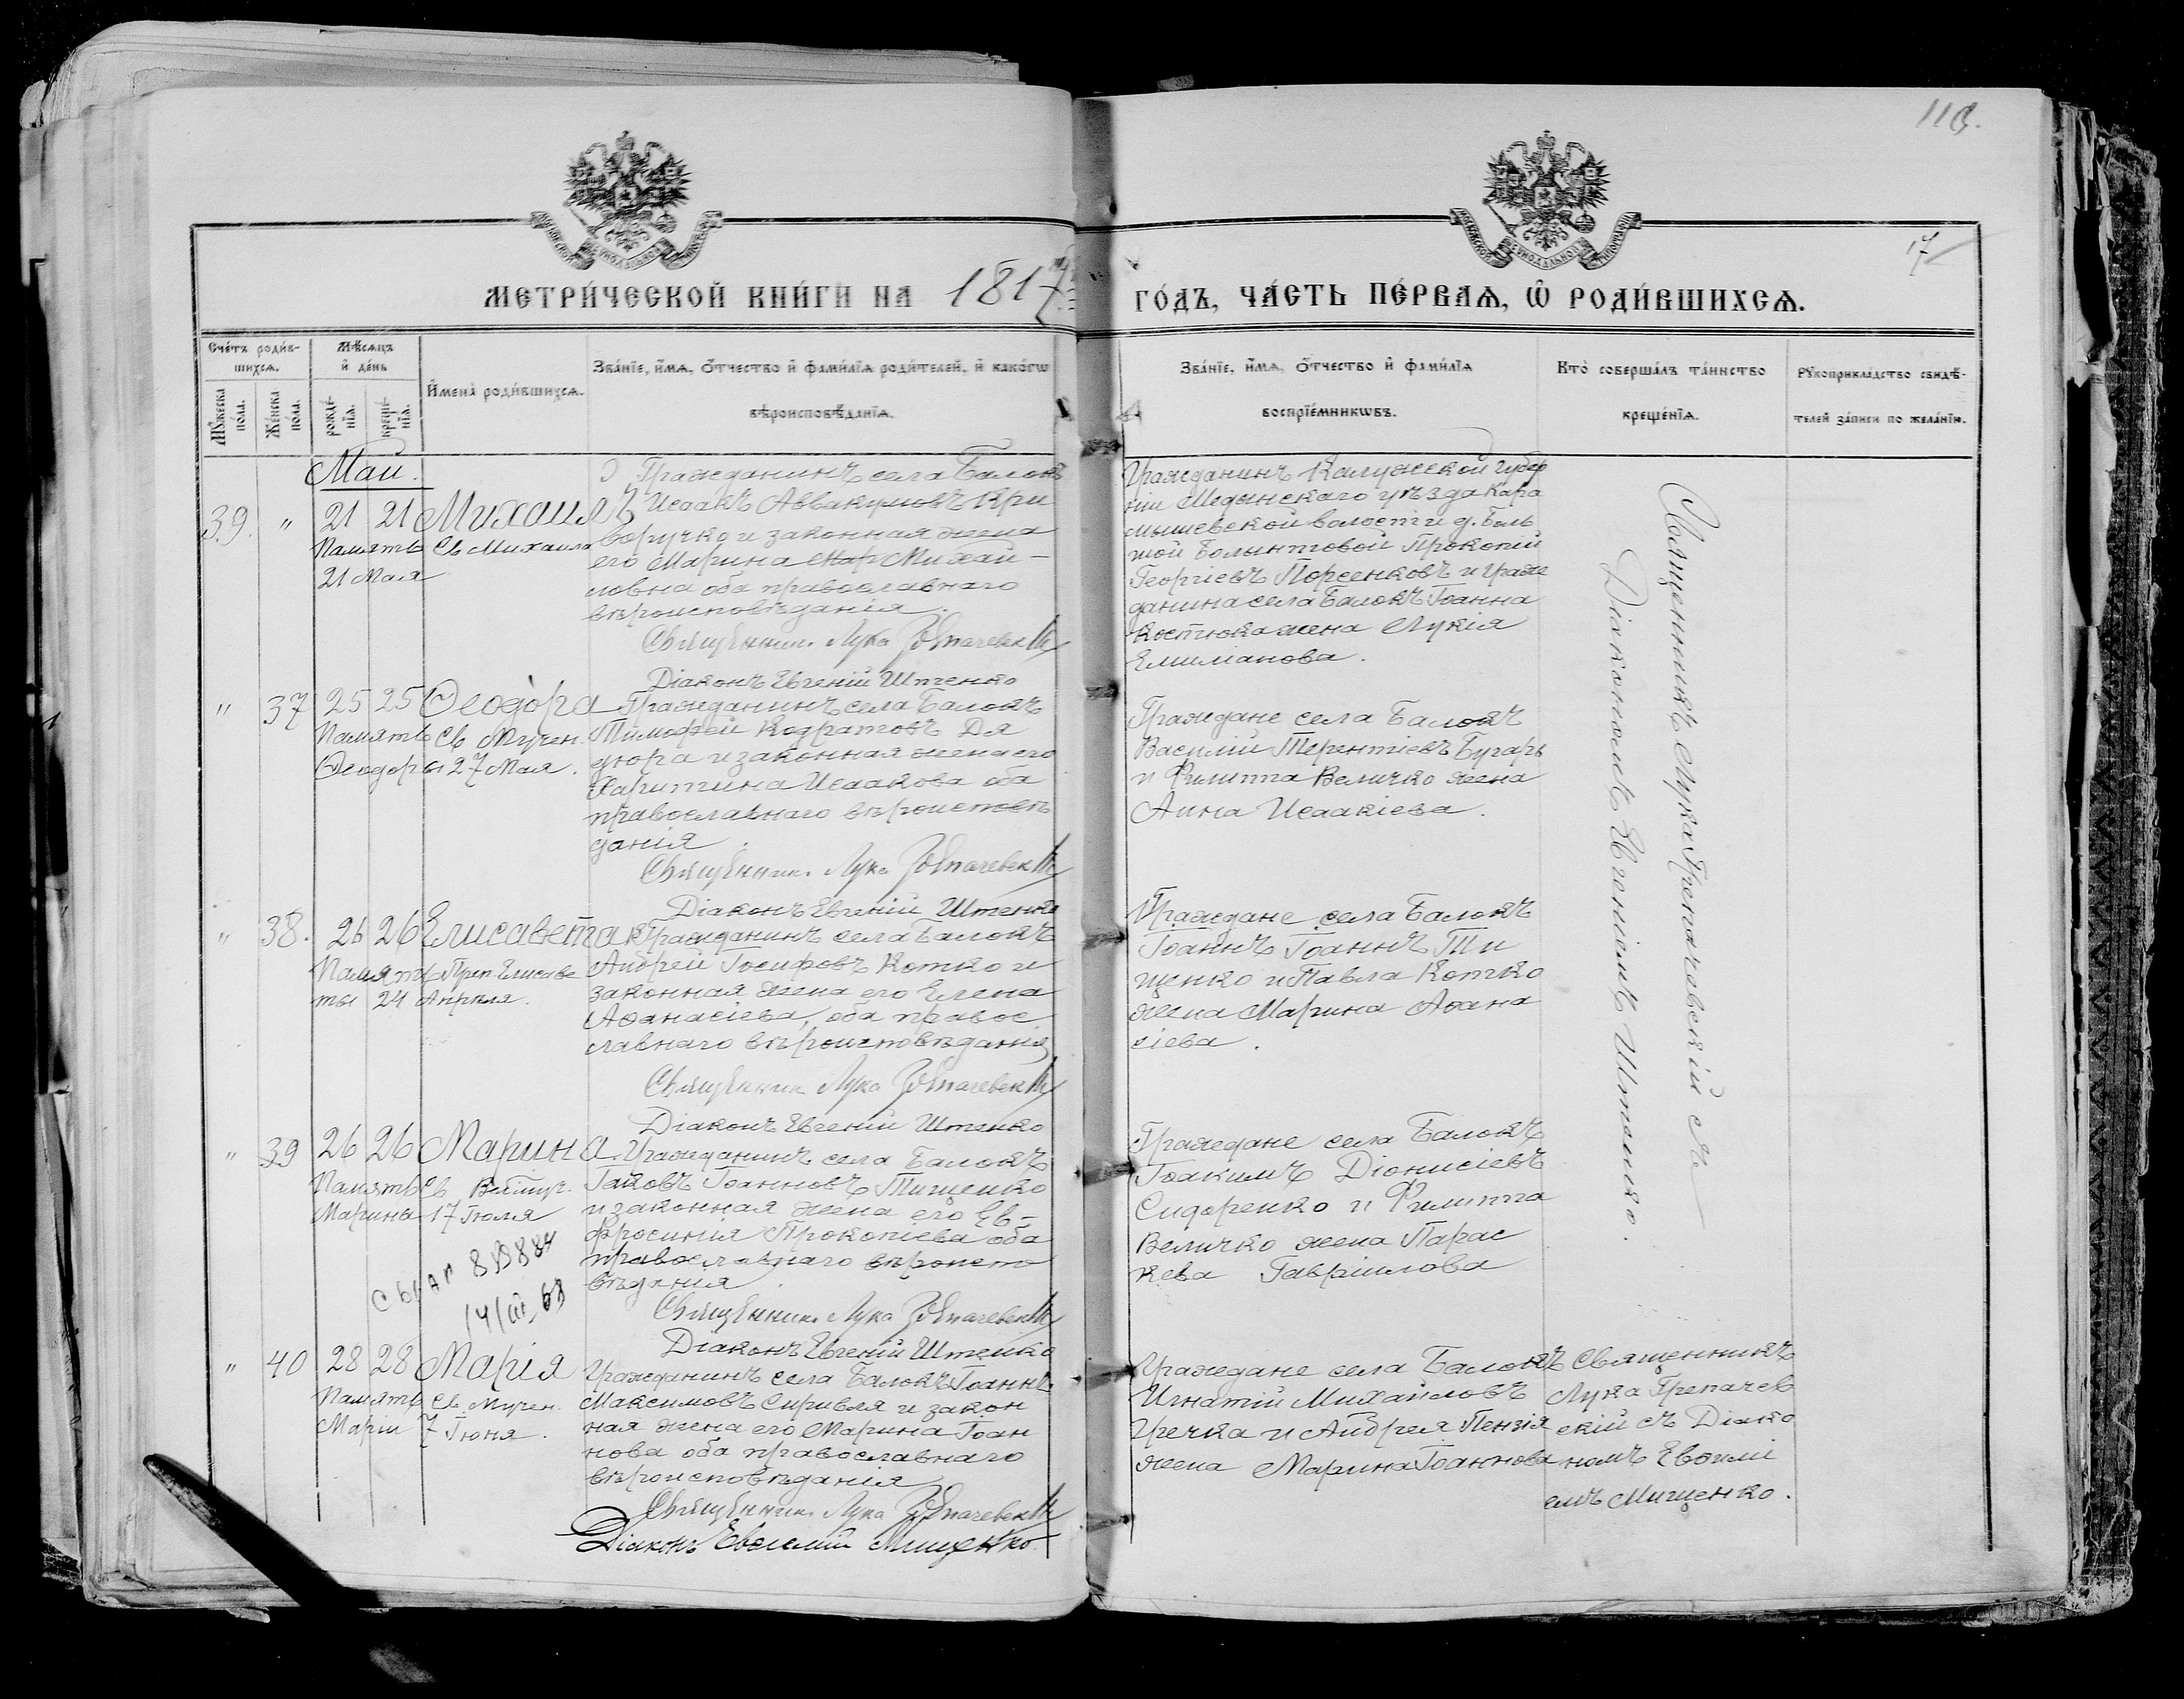 118.
17
МЕТРИ́ЧЕСКОЙ КНИ́ГИ НА 1817
ГО́ДЪ, ЧА́СТЬ ПЕ́РВАѦ, Ѡ РОДИ́ВШИХСѦ.
Сче́тъ роди́в-
шихсѧ.
Мꙋ́жеска по́ла.
Же́нска по́ла.
Мѣ́сѧцъ
и де́нь
рожде́-нїѧ.
креще́-нїѧ.
Имена̀ роди́вшихсѧ.
Зва́нїе, и́мѧ, ѻ́тчество и фами́лїѧ роди́телей, и како́гѡ
вѣроисповѣ́данїѧ.
Зва́нїе, и́мѧ, ѻ́тчество и фами́лїѧ
воспрїе́мникѡвъ.
Кто̀ соверша́лъ та́инство
креще́нїѧ.
Рꙋкоприкла́дство свидѣ́-
телей за́писи по жела́нїю.
Май.
39. " 21 21 Михаилъ
Память Св Михаила
21 Мая
Гражданинъ села Балокъ
Исаакъ Аввакумовъ Кри
воручко и законная жена
его Марина Мар Михай-
ловна оба православнаго
вѣроисповѣданія.
Священник Лука
Діаконъ Евгеній Штенко
Гражданинъ Калужской губер
ніи Медынскаго уѣзда Кара
мышевской волости д. Боль
шой Прокопій
Георгіевъ Порсенковъ и граж
данина села Балокъ Іоанна
Костюка жена Лукія
Емиліанова.
Священникъ Лука Грепачевскій съ
Діакономъ Евгеніемъ Штенко.
" 37 25 25 Ѳеодора
Память Св Мучен.
Ѳеодоры 27 Мая.
Гражданинъ села Балокъ
Тимофей Кодратовъ Дя
дюра и законная жена его
Харитина Исаакова оба
православнаго вѣроисповѣ
данія.
Священник Лука
Діаконъ Евгеній Штенко
Граждане села Балокъ
Василій Терентіевъ Бугарь
и Филиппа Величко жена
Анна Исаакіева.
" 38. 26 26 Елисавета
Память Преп. Елисаве
ты 24 Апрѣля.
Гражданинъ села Балокъ
Андрей Іосифовъ Котко и
законная жена его Елена
Аѳанасіева, оба правос
лавнаго вѣроисповѣданія
Священник Лука
Діаконъ Евгеній Штенко
Граждане села Балокъ
Іоаннъ Іоаннъ Ти
щенко и Павла Котко
жена Марина Аѳана
сіева.
" 39 26 26 Марина
Память Св Велмуч.
Марины 17 Іюля
14/III 68
Гражданинъ села Балокъ
Іаковъ Іоанновъ Тищенко
и законная жена его Ев-
фросинія Прокопіева оба
православнаго вѣроиспо
вѣданія.
Священник Лука
Діаконъ Евгеній Штенко
Граждане села Балокъ
Іоакимъ Діонисіевъ
Сидоренко и Филиппа
Величко жена Парас
кева Гавріилова
" 40 28 28 Марія
Память Св. Мучен.
Маріи 7 Іюня.
Гражданинъ села Балокъ Іоаннъ
Максимовъ Сиривля и закон
ная жена его Марина Іоан
нова оба православнаго
вѣроисповѣданія
Священник Лука
Діаконъ Евѳимій Мищенко
Граждане села Балокъ
Игнатій Михайловъ
Гречка и Андрея Пензія
жена Марина Іоаннова
Священникъ
Лука Грепачев
скій съ Діако
номъ Евѳимі
емъ Мищенко.